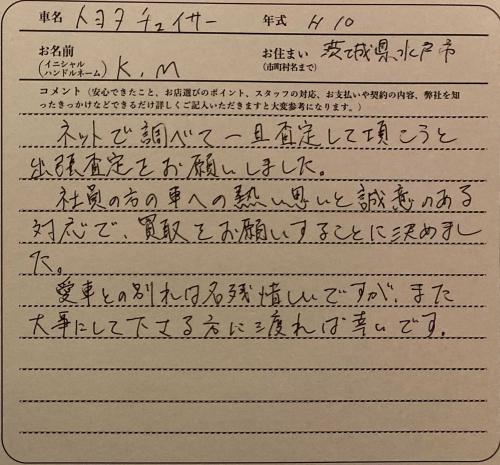 車名 トヨタ チェイサー 年式 H10
お名前 (イニシャル ハンドルネーム) K.M お住まい (市町村名まで) 茨城県水戸市
コメント（安心できたこと、お店選びのポイント、スタッフの対応、お支払いや契約の内容、弊社を知
ったきっかけなどできるだけ詳しくご記入いただきますと大変参考になります。）
ネットで調べて一旦査定して頂こうと
出張査定をお願いしました。
社員の方の車への熱い思いと誠意のある
対応で、買取をお願いすることに決めまし
た。
愛車との別れは名残惜しいですが、また
大事にして下さる方に渡れば幸いです。